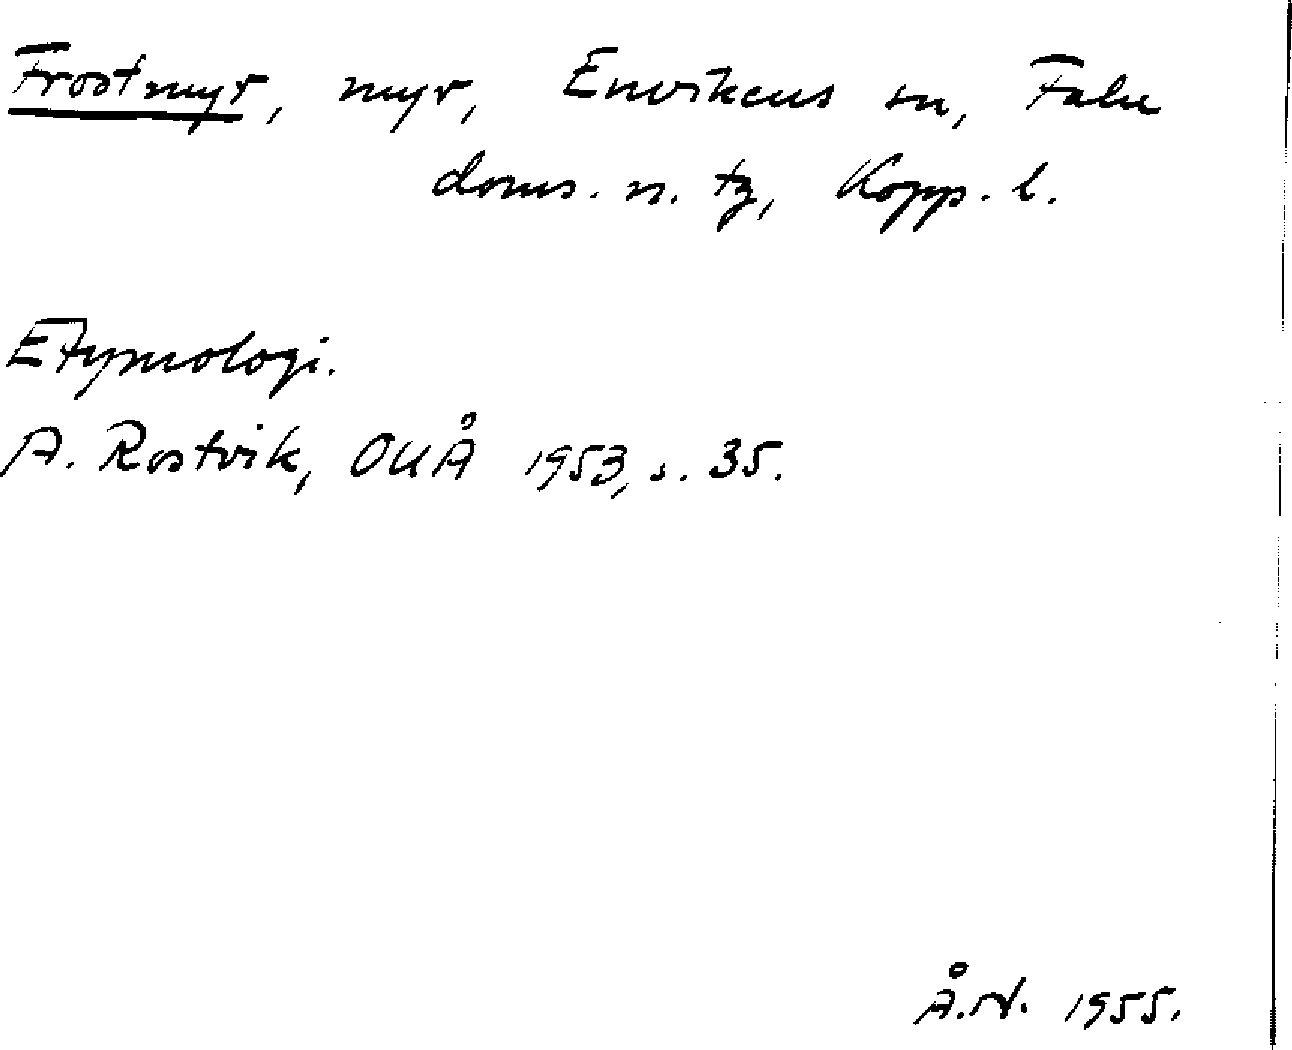 Frostmyr, myr, Envikens sn, Falu
doms. n. tg, Kopp. l.
Etymologi.
A. Rostvik, OUÅ 1953, s. 35.
Å.N. 1955.